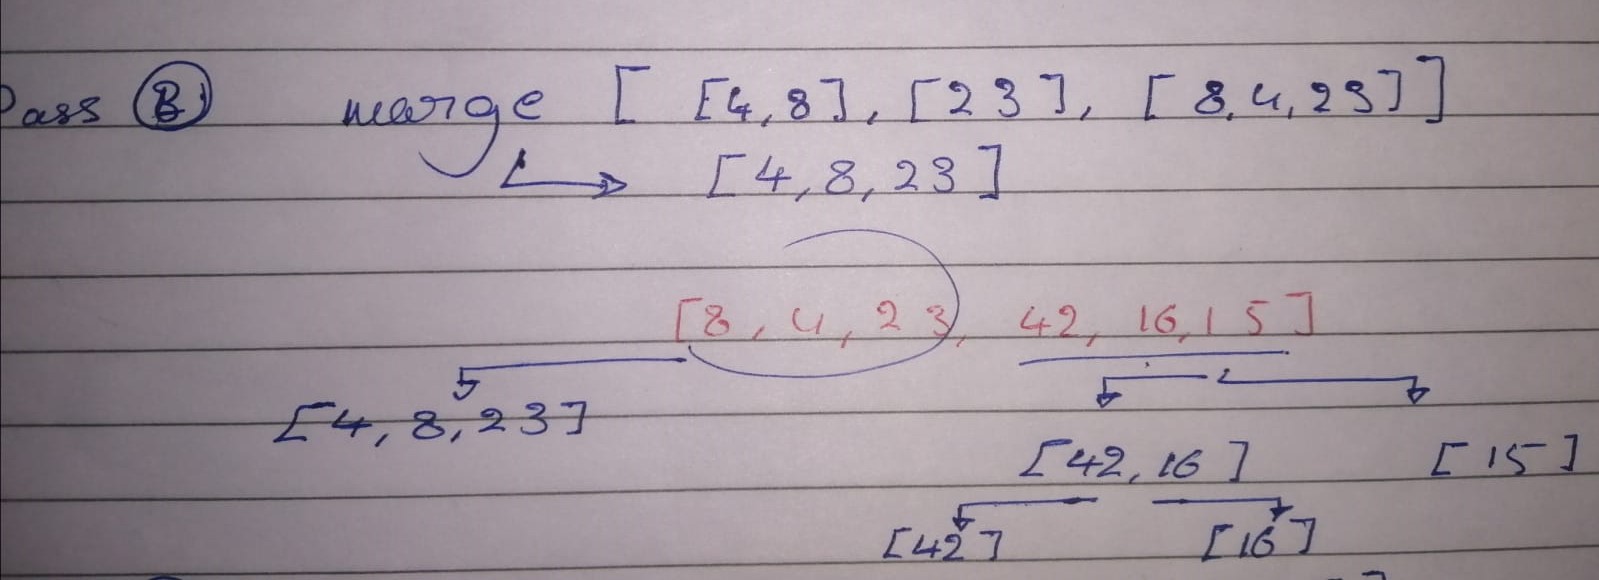 Pass B merge [ [4,8], [23], [8,4,23] ]
[4,8,23]
[8, 4, 23, 42, 16, 15]
[4, 8, 23]
[42, 16] [15]
[42] [16]